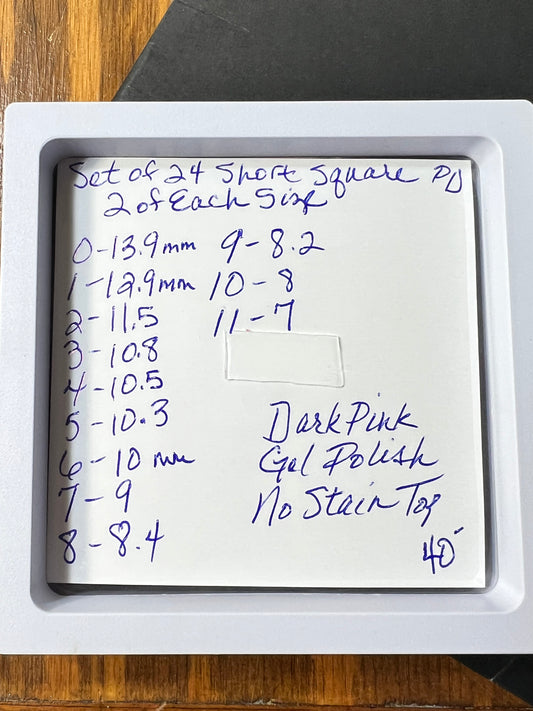 Set of 24 Short Square PD
2 of Each Size
0-13.9mm
1-12.9mm
2-11.5
3-10.8
4-10.5
5-10.3
6-10 mm
7-9
8-8.4
9-8.2
10-8
11-7
Dark Pink
Gel Polish
No Stain Top
40